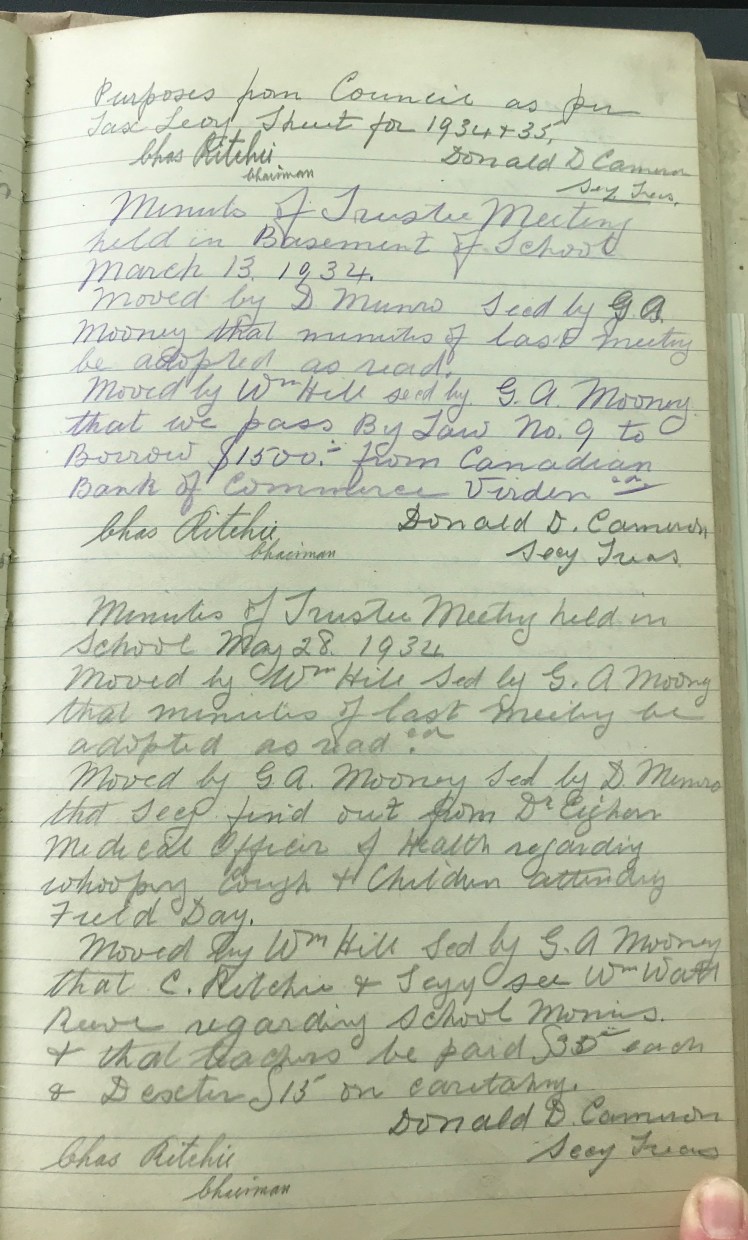 Purposes from Council as per
Tax Levy Sheet for 1934 & 35.
Chas Ritchie
Chairman
Donald D Cameron
Secy Treas.
Minutes of Trustee Meeting
held in Basement of School
March 13. 1934.
Moved by D Munro Secd by G. A.
Mooney that minutes of last meeting
be adopted as read.
Moved by Wm Hill secd by G. A. Mooney
that we pass By Law No. 9 to
Borrow $1500.- from Canadian
Bank of Commerce Virden cd
Chas Ritchie
Chairman
Donald D. Cameron
Secy Treas
Minutes of Trustee Meeting held in
School May 28. 1934
Moved by Wm Hill Sed by G. A Mooney
that minutes of last meeting be
adopted as read. cd
Moved by G A. Mooney Sed by D. Munro
that Secy find out from Dr
Medical Officer of Health regarding
whooping Cough & Children attending
Field Day.
Moved by Wm Hill Sed by G. A Mooney
that C. Ritchie & Secy see Wm Watt
Reeve regarding School Monies.
& that teachers be paid $35- each
& Dexter $15 on caretaking.
Donald D. Cameron
Secy Treas
Chas Ritchie
Chairman